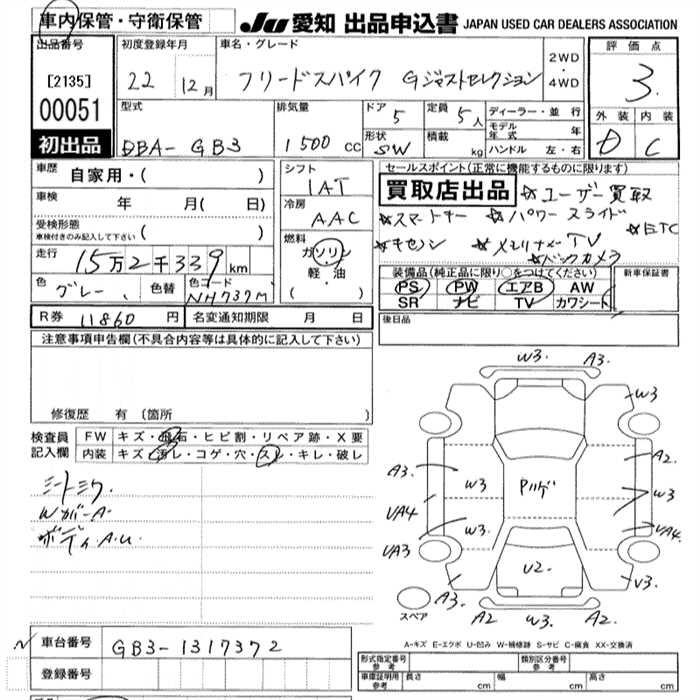 車内保管・守衛保管
JU 愛知 出品申込書 JAPAN USED CAR DEALERS ASSOCIATION
出品番号
[2135]
00051
初出品
初度登録年月
22 12月
車名・グレード
フリードスパイク Gジャストセレクション
2WD
・
4WD
評価点
3.
外装 内装
D C
型式
DBA- GB3
排気量
1500 cc
ドア
5
定員
5人
形状
SW
積載
kg
ディーラー・並行
モデル年式 年
ハンドル 左・右
車歴
自家用・( )
車検
年 月( 日)
受検形態
車検付きのみ記入して下さい ( )
走行
15万2千339km
色
グレー
色替
色コード
NH737M
シフト
IAT
冷房
AAC
燃料
ガソリン
軽・油
( )
セールスポイント(正常に機能するものに限ります)
買取店出品 ☆ユーザー買取
☆スマートキー ☆パワースライド ☆ETC
☆キセノン ☆メモリナビTV
☆バックカメラ
装備品(純正品に限り○をつけてください)
PS PW エアB AW
SR ナビ TV カワシート
新車保証書
R券 11860 円
名変通知期限 月 日
後日品
注意事項申告欄(不具合内容等は具体的に記入して下さい)
修復歴 有(箇所 )
検査員記入欄
FW キズ・飛石・ヒビ割・リペア跡・X要
内装 キズ・汚レ・コゲ・穴・スレ・キレ・破レ
シートミク.
WカバーA.
ボディA.U.
W3. A3.
W3
A3. A2.
W3 Pハゲ W3
VA4 VA4
W3
VA3
U2.
A3. V3.
スペア
A2 W3. A2.
A-キズ E-エクボ U-凹み W-補修跡 S-サビ C-腐食 XX-交換済
車台番号
GB3-1317372
登録番号
形式指定番号
参考
類別区分番号
参考
車庫証明用
参考
長さ cm 幅 cm 高さ cm